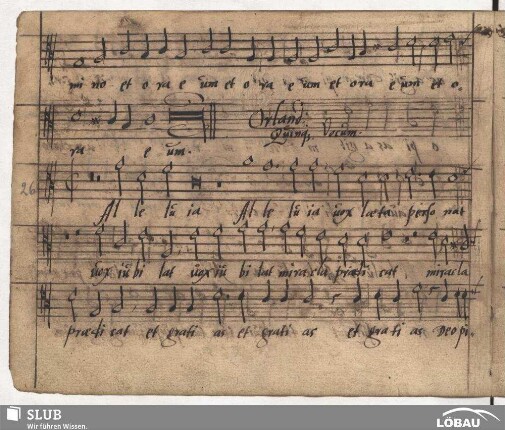 mi no et o ra e um et o ra e um et ora e um et o.
ra e um.
Orland:
Quinq; Vocum.
26
Al le lu ia Al le lu ia vox laeta perso nat
vox iu bi lat vox iu bi lat miracla praedi cat, miracla
praedi cat et grati as et grati as et gra ti as Deo pi
SLUB
Wir führen Wissen.
LÖBAU